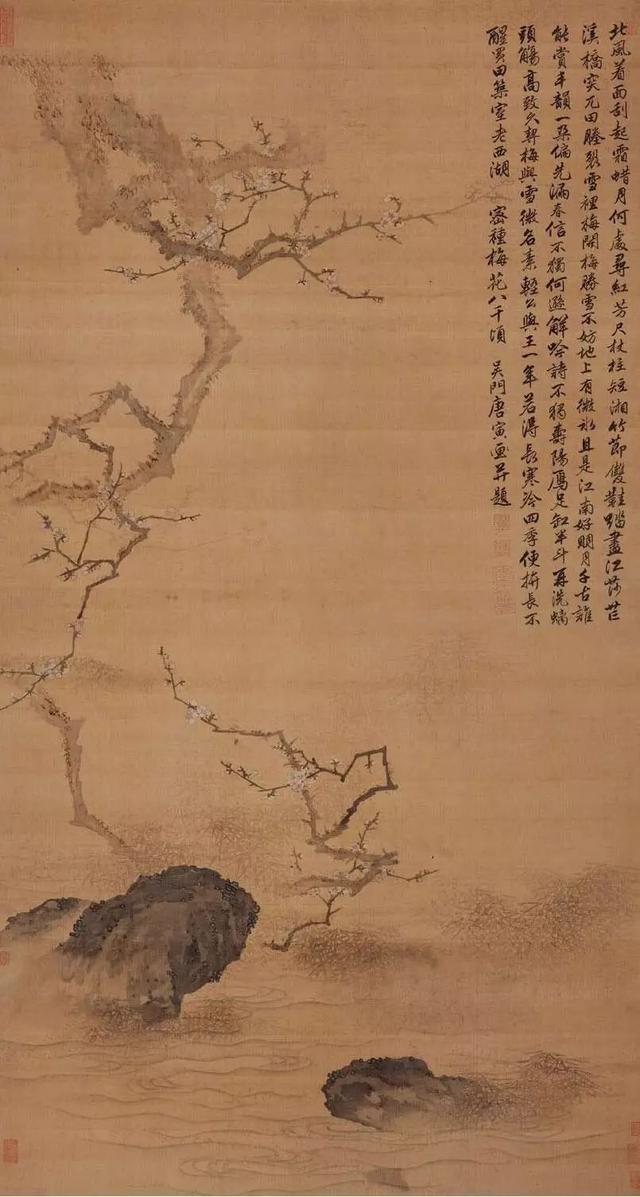 北風着面刮起霜蜡月何處尋紅芳尺杖柱短湘竹節雙鞋踏盡江
溪橋突兀田塍裂雪裡梅開梅勝雪不妨地上有微冰且是江南好明月千古誰
能賞丰韻一朵偏先漏春信不獨何遜解吟詩不獨壽陽
頭觴高致久契梅與雪微名素輕公與王一年若得長寒冷四季便拚長不
醒買田築室老西湖密種梅花八千頃吳門唐寅画并題